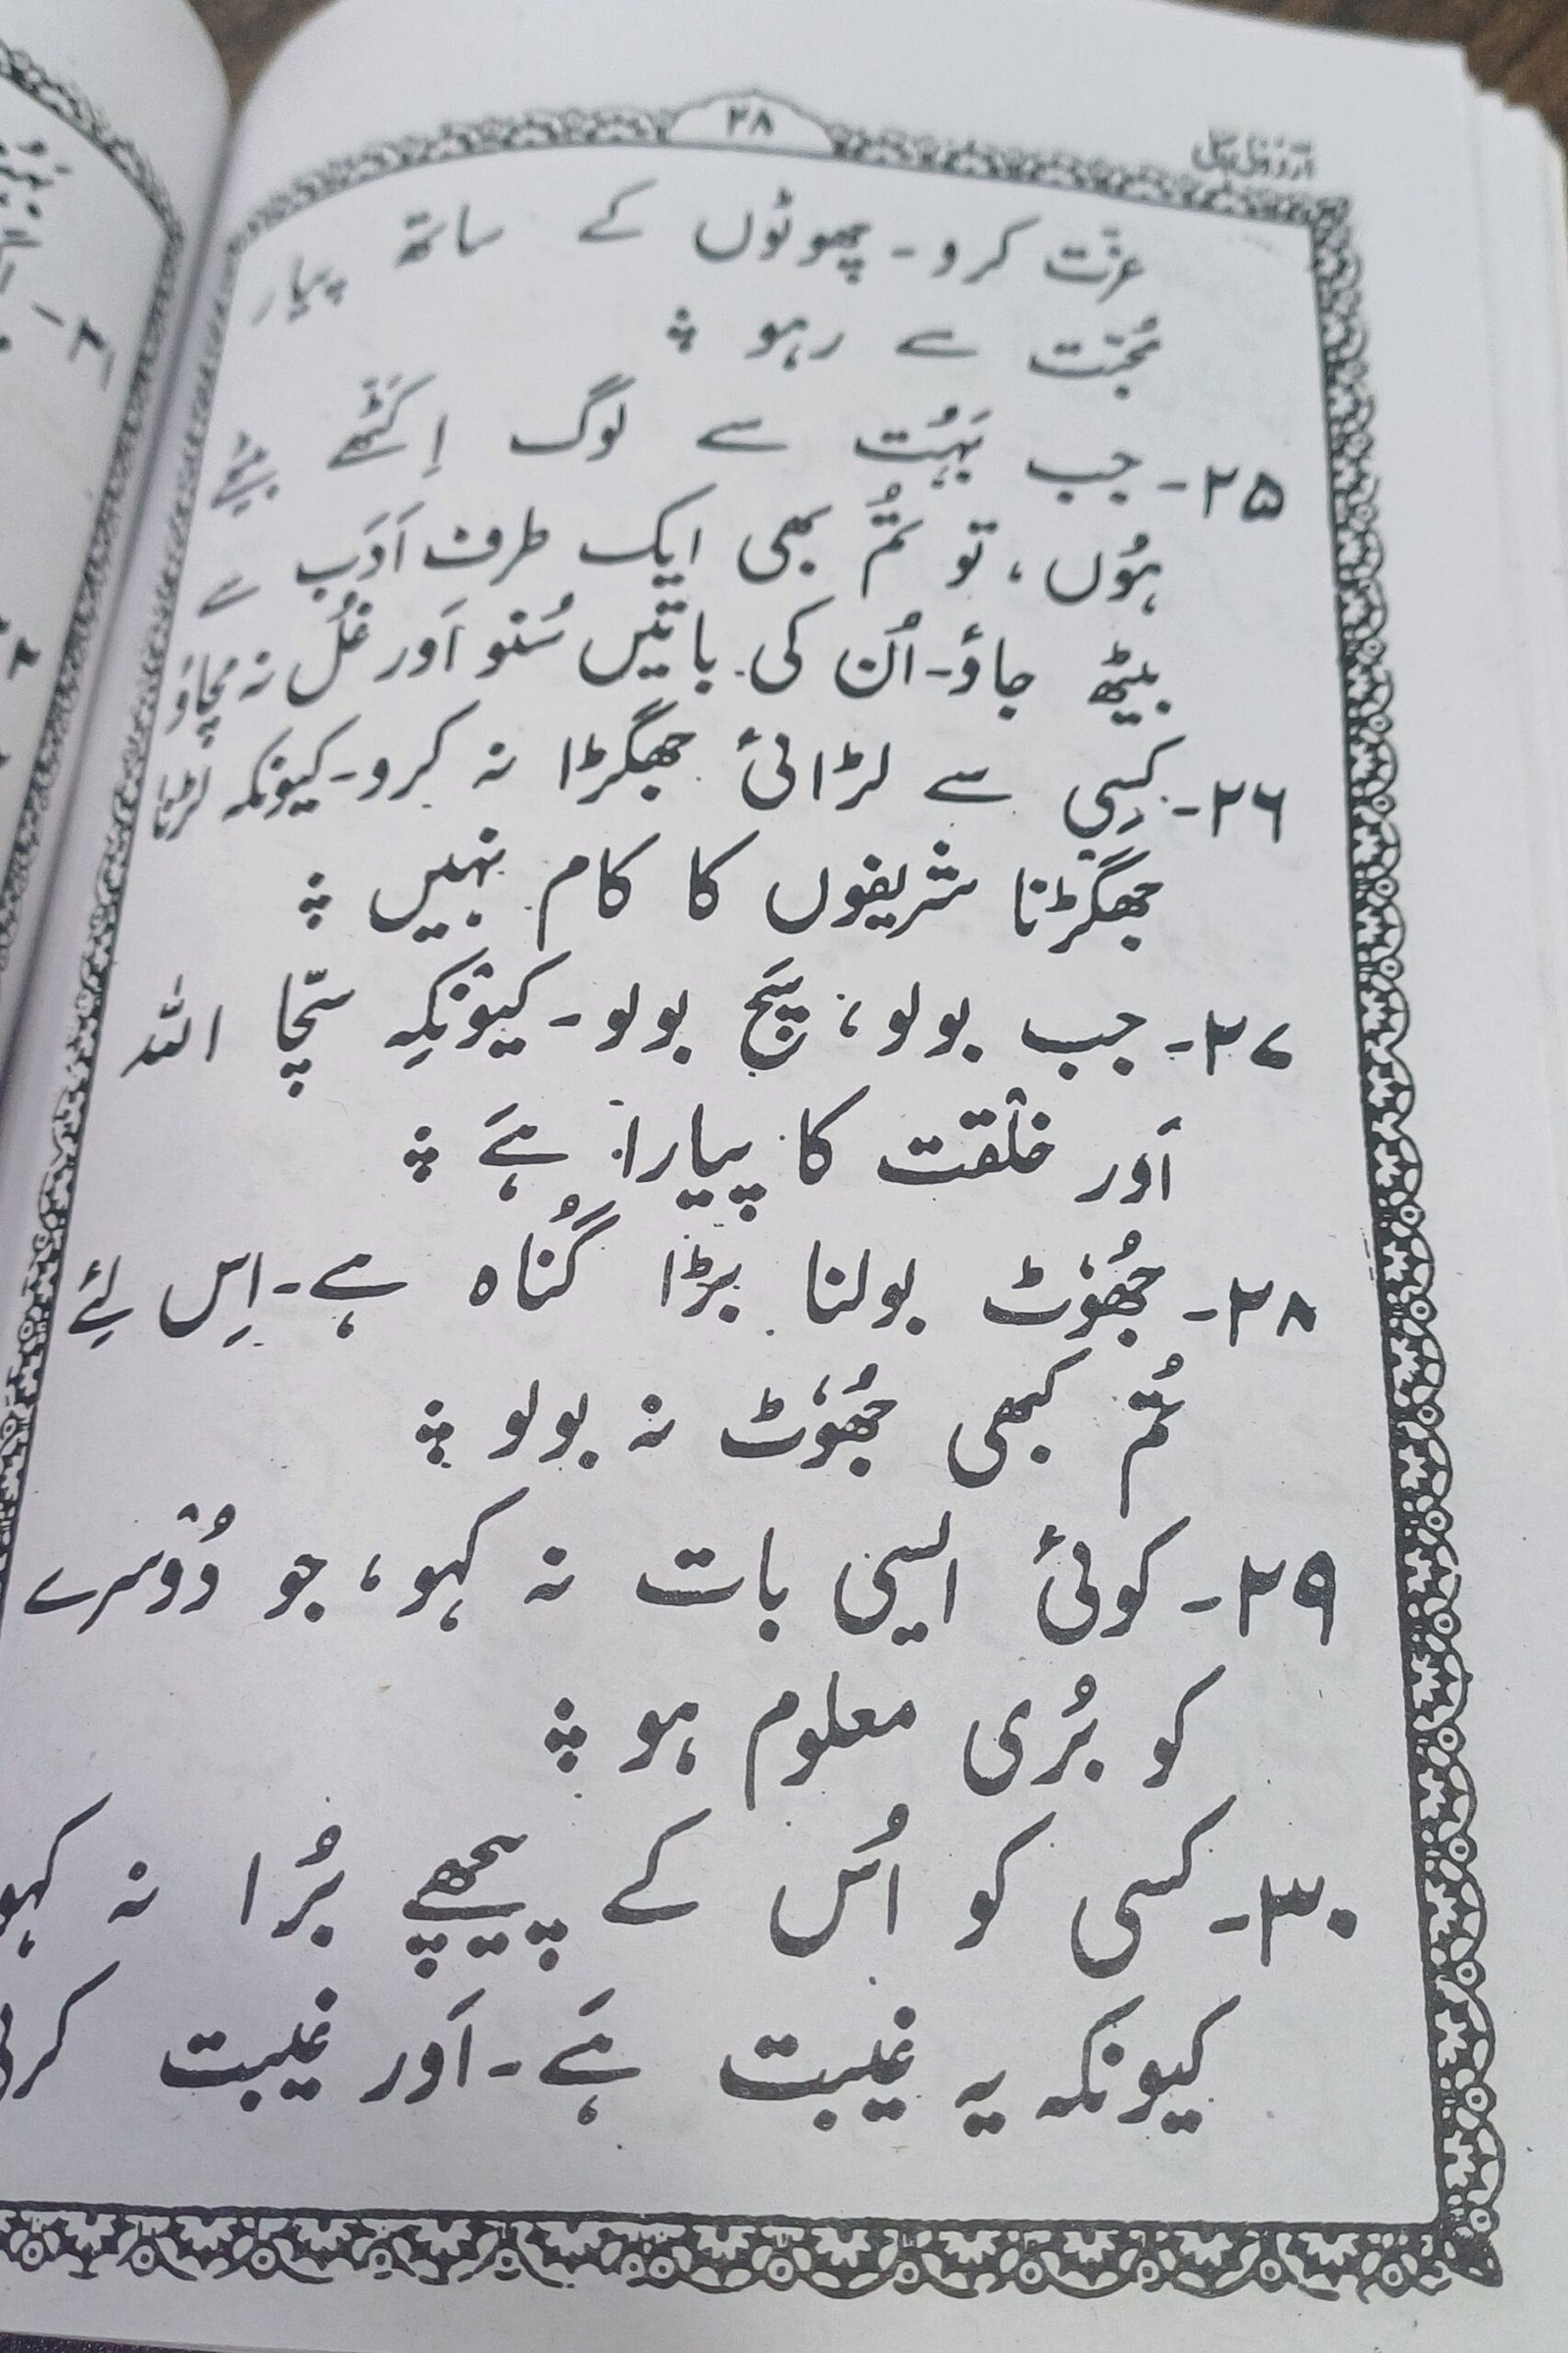 ۲۸
عزّت کرو۔ چھوٹوں کے ساتھ پیار
مُحبّت سے رہو ؞
۲۵۔ جب بَہُت سے لوگ اِکَٹّھے بیٹھے
ہُوں، تو تُم بھی ایک طرف اَدَب سے
بیٹھ جاؤ۔ اُن کی باتیں سُنو اَور غُل نہ مچاؤ
۲۶۔ کِسِی سے لڑائی جھگڑا نہ کرو۔ کیونکہ لڑنا
جھگڑنا شریفوں کا کام نہیں ؞
۲۷۔ جب بولو، سَچ بولو۔ کیونکِہ سچّا اللہ
اَور خلْقت کا پیارا ہَے ؞
۲۸۔ جُھوْٹ بولنا بڑا گُناہ ہے۔ اِس لِئے
تُم کبھی جُھوْٹ نہ بولو ؞
۲۹۔ کوئی ایسی بات نہ کہو، جو دُوْسرے
کو بُری معلوم ہو ؞
۳۰۔ کسی کو اُس کے پیچھے بُرا نہ کہو
کیونکہ یہ غیبت ہَے۔ اَور غیبت